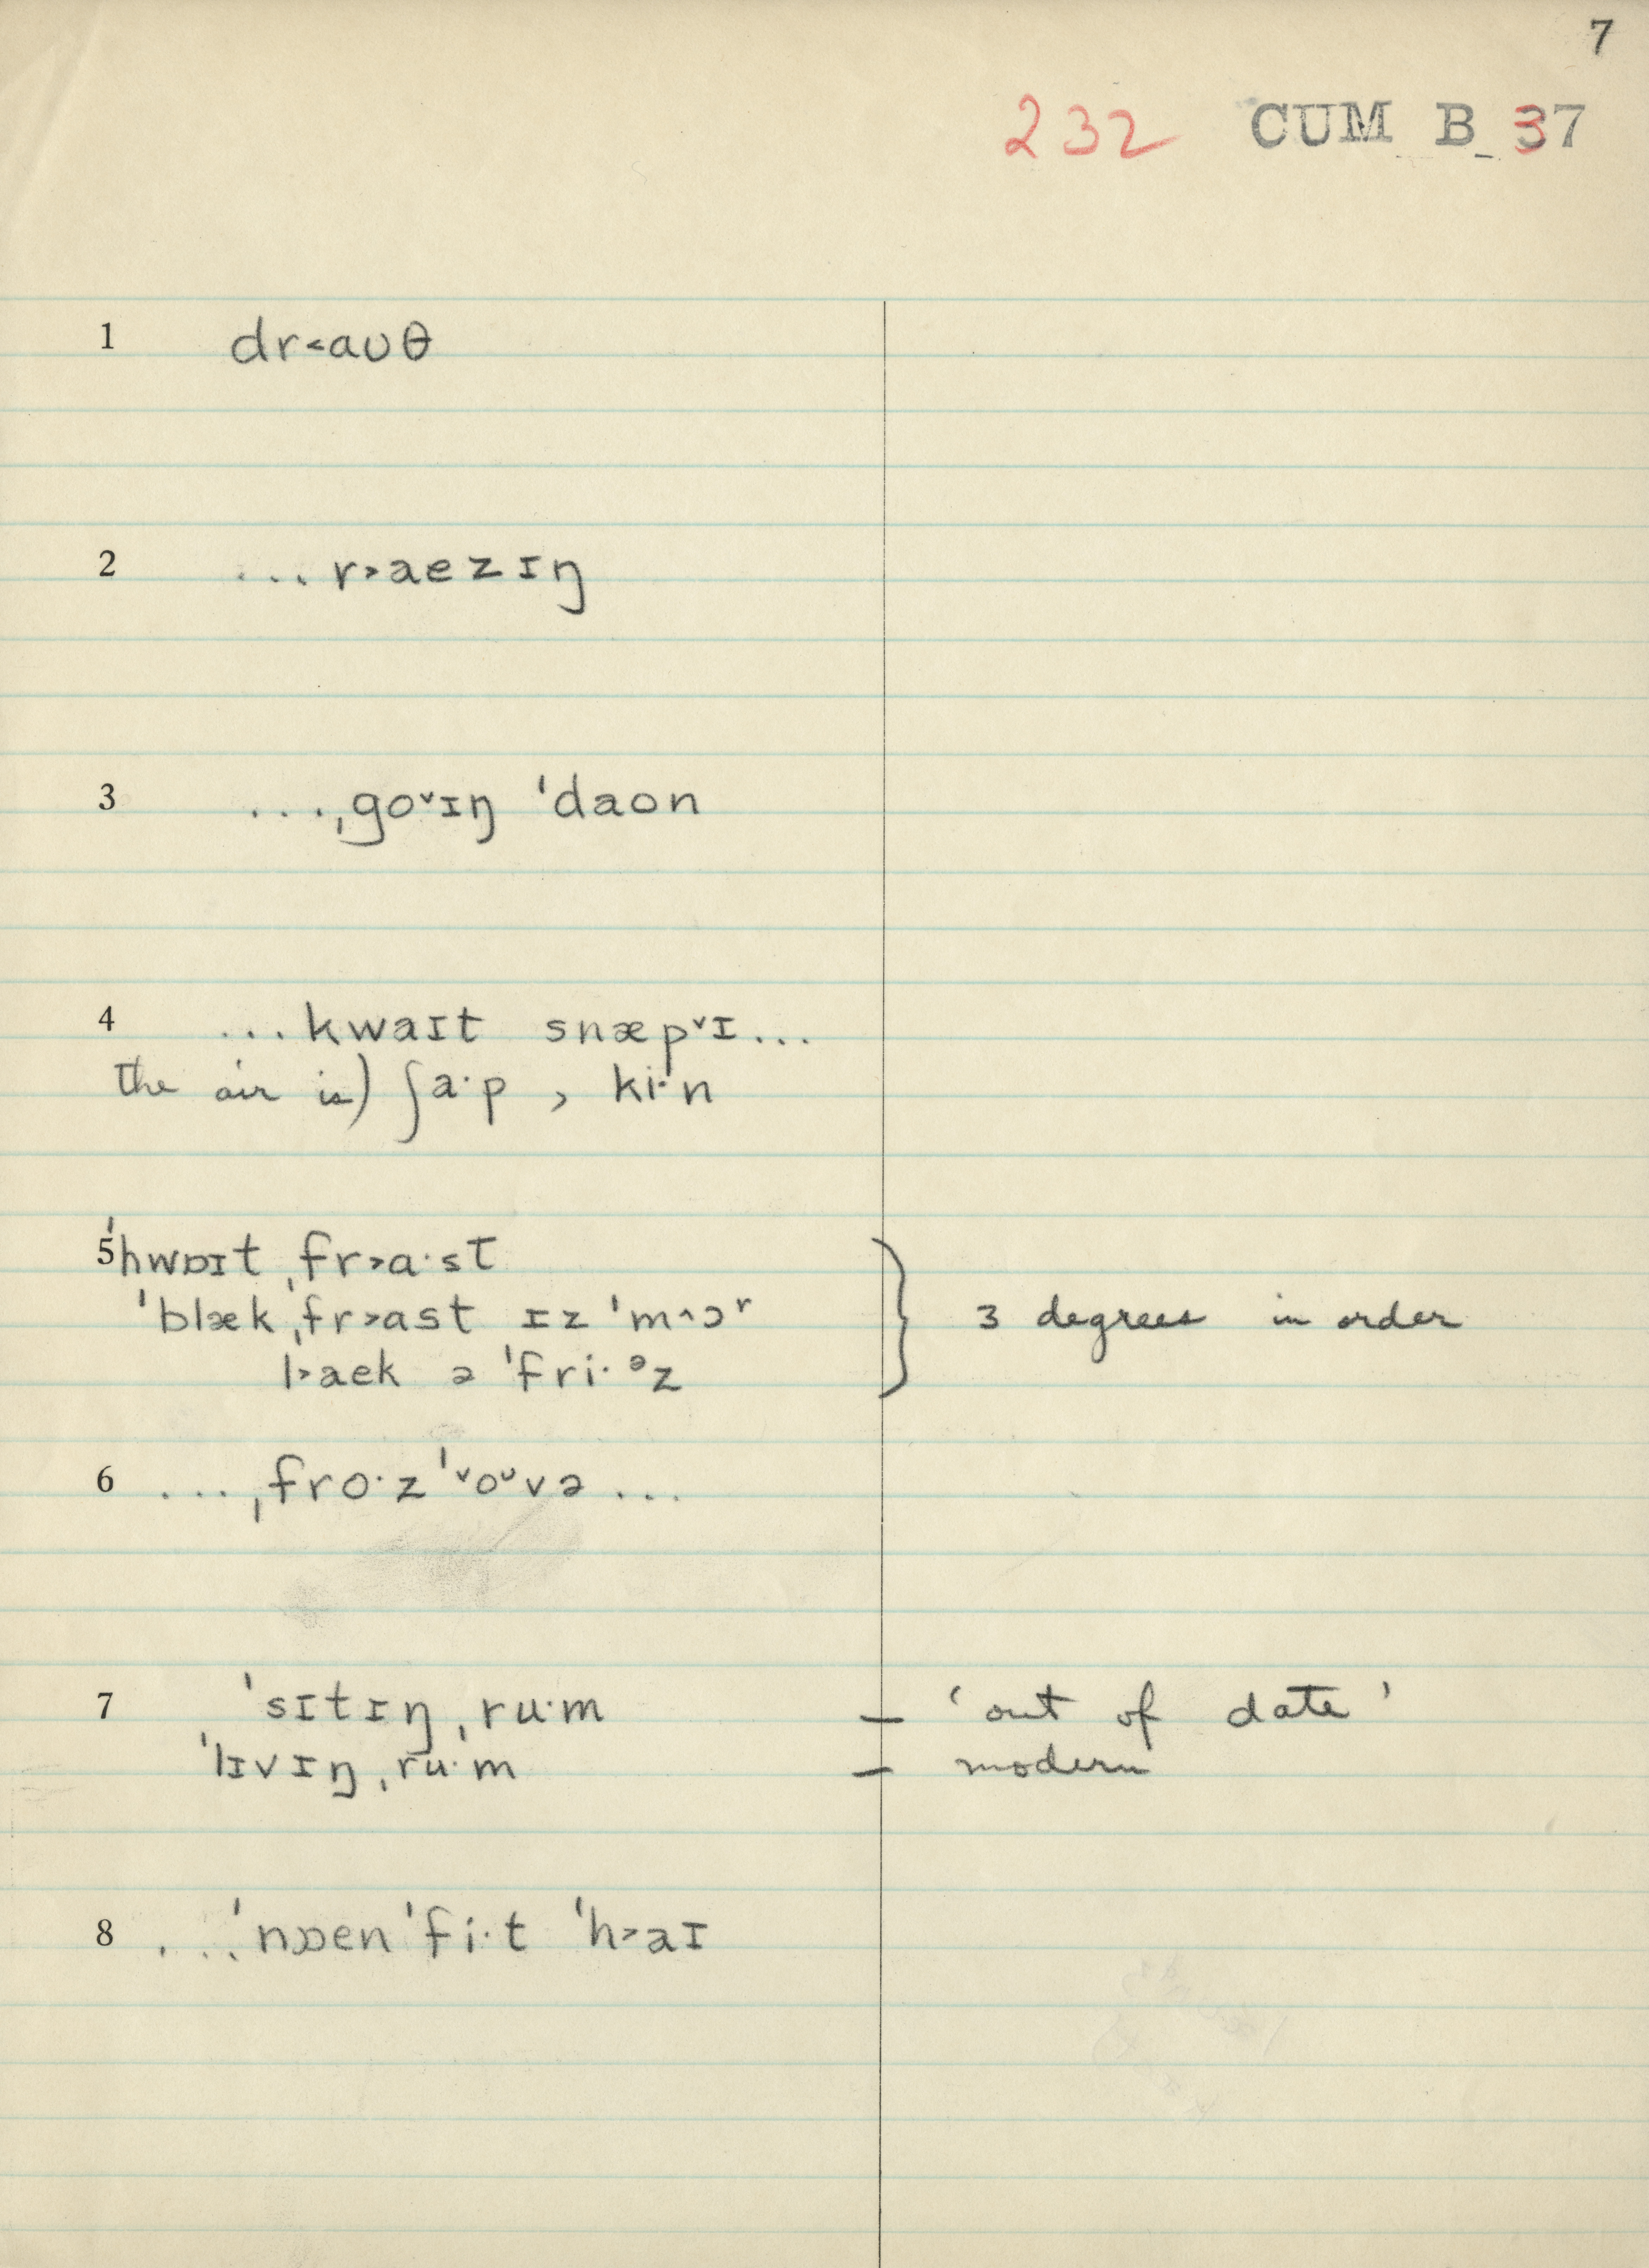 7
232 CUM B 37
1 dr˂aʊθ
2 ... r˃aezɪŋ
3 ...ˌgoˇɪŋ ˈdaon
4 ...kwaɪt snæpˇɪ...
the air is) ʃa·p , ki·n
5 ˈhwɒɪt ˌfr˃a·st
ˈblækˌfr˃ast ɪz ˈm^ɔʳ } 3 degrees in order
l˃aek ə ˈfri·ᵊz
6 ...ˌfro·zˈˇoᶷvə...
7 ˈsɪtɪŋˌru·m – ‘out of date’
ˈlɪvɪŋˌru·m – modern
8 ...ˈnɒenˈfi·t ˈh˃aɪ